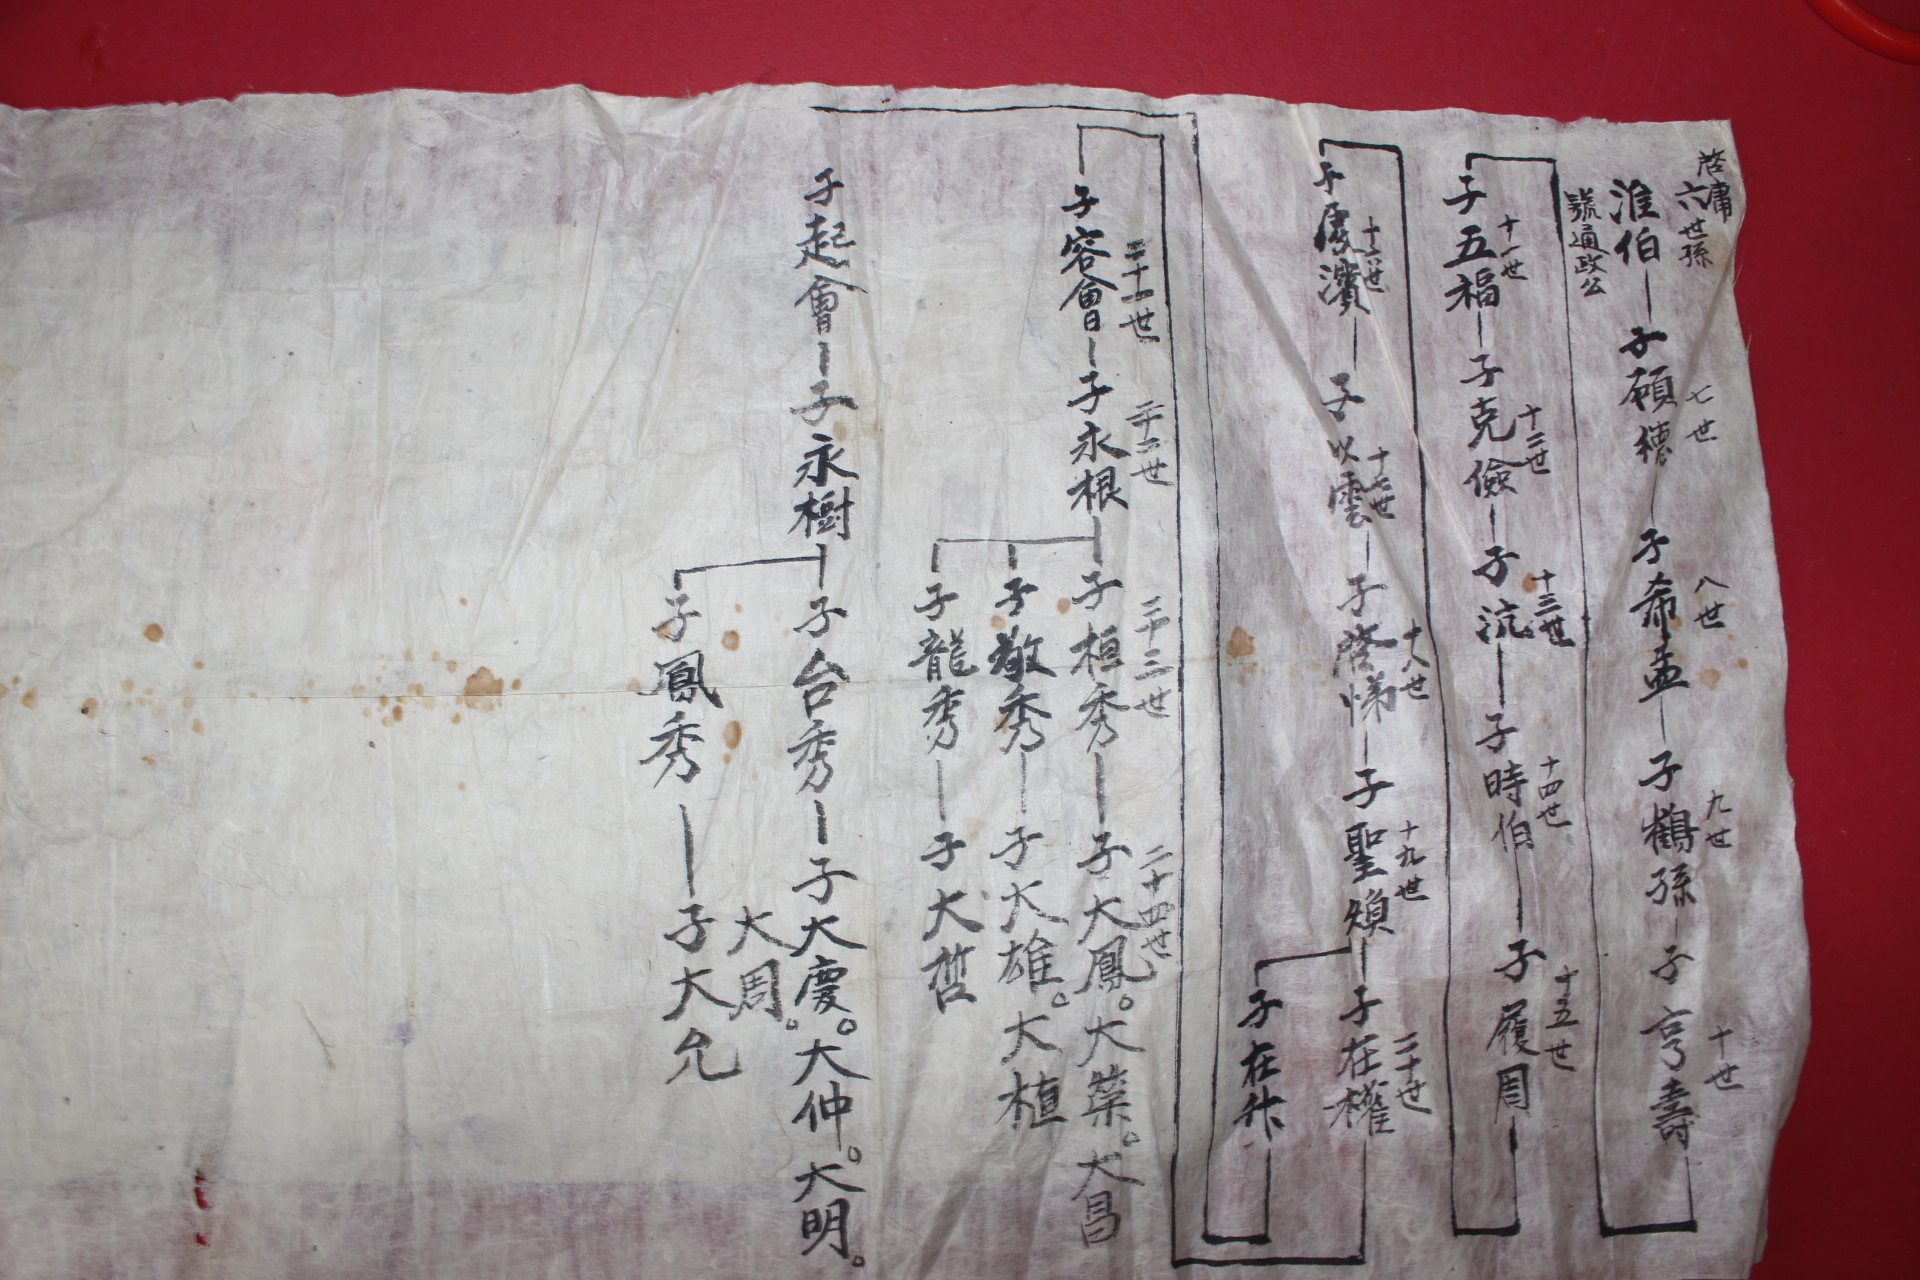 啓庸
六世孫
淮伯 子願德 子希孟 子鶴孫 子亨壽
七世 八世 九世 十世
號通政公
子五福 子克儉 子沆 子時伯 子履周
十一世 十二世 十三世 十四世 十五世
子慶濱 子以雲 子啓悌 子聖煥 子在權
十六世 十七世 十八世 十九世 二十世
子在作
二十一世 二十二世 二十三世 二十四世
子容會 子永根 子桓秀 子大鳳。大葉。大昌
子敬秀 子大雄。大植
子龍秀 子大哲
子起會 子永樹 子台秀 子大慶。大仲。大明。
大周。
子鳳秀 子大允